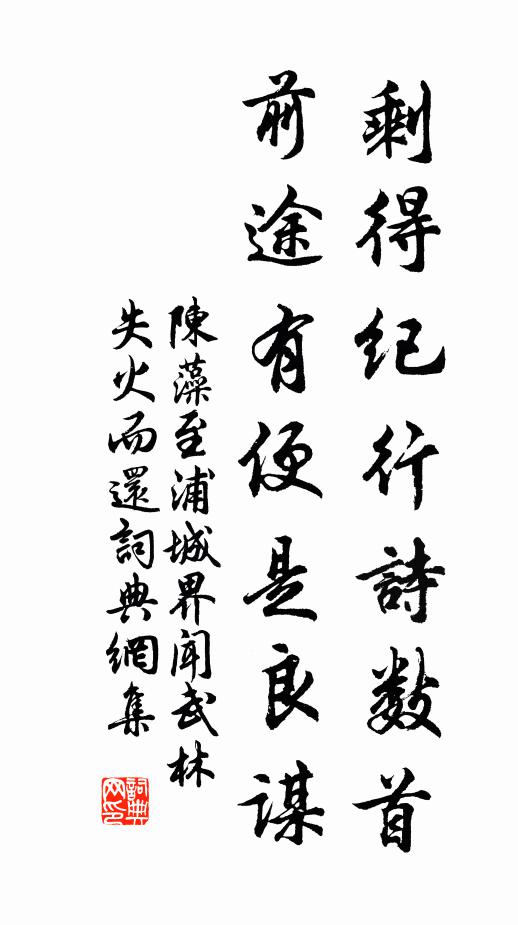 剩得紀行詩數首
前途有便是良謀
陳藻至浦城界聞武林
失火而還詞典網集
詞典網印